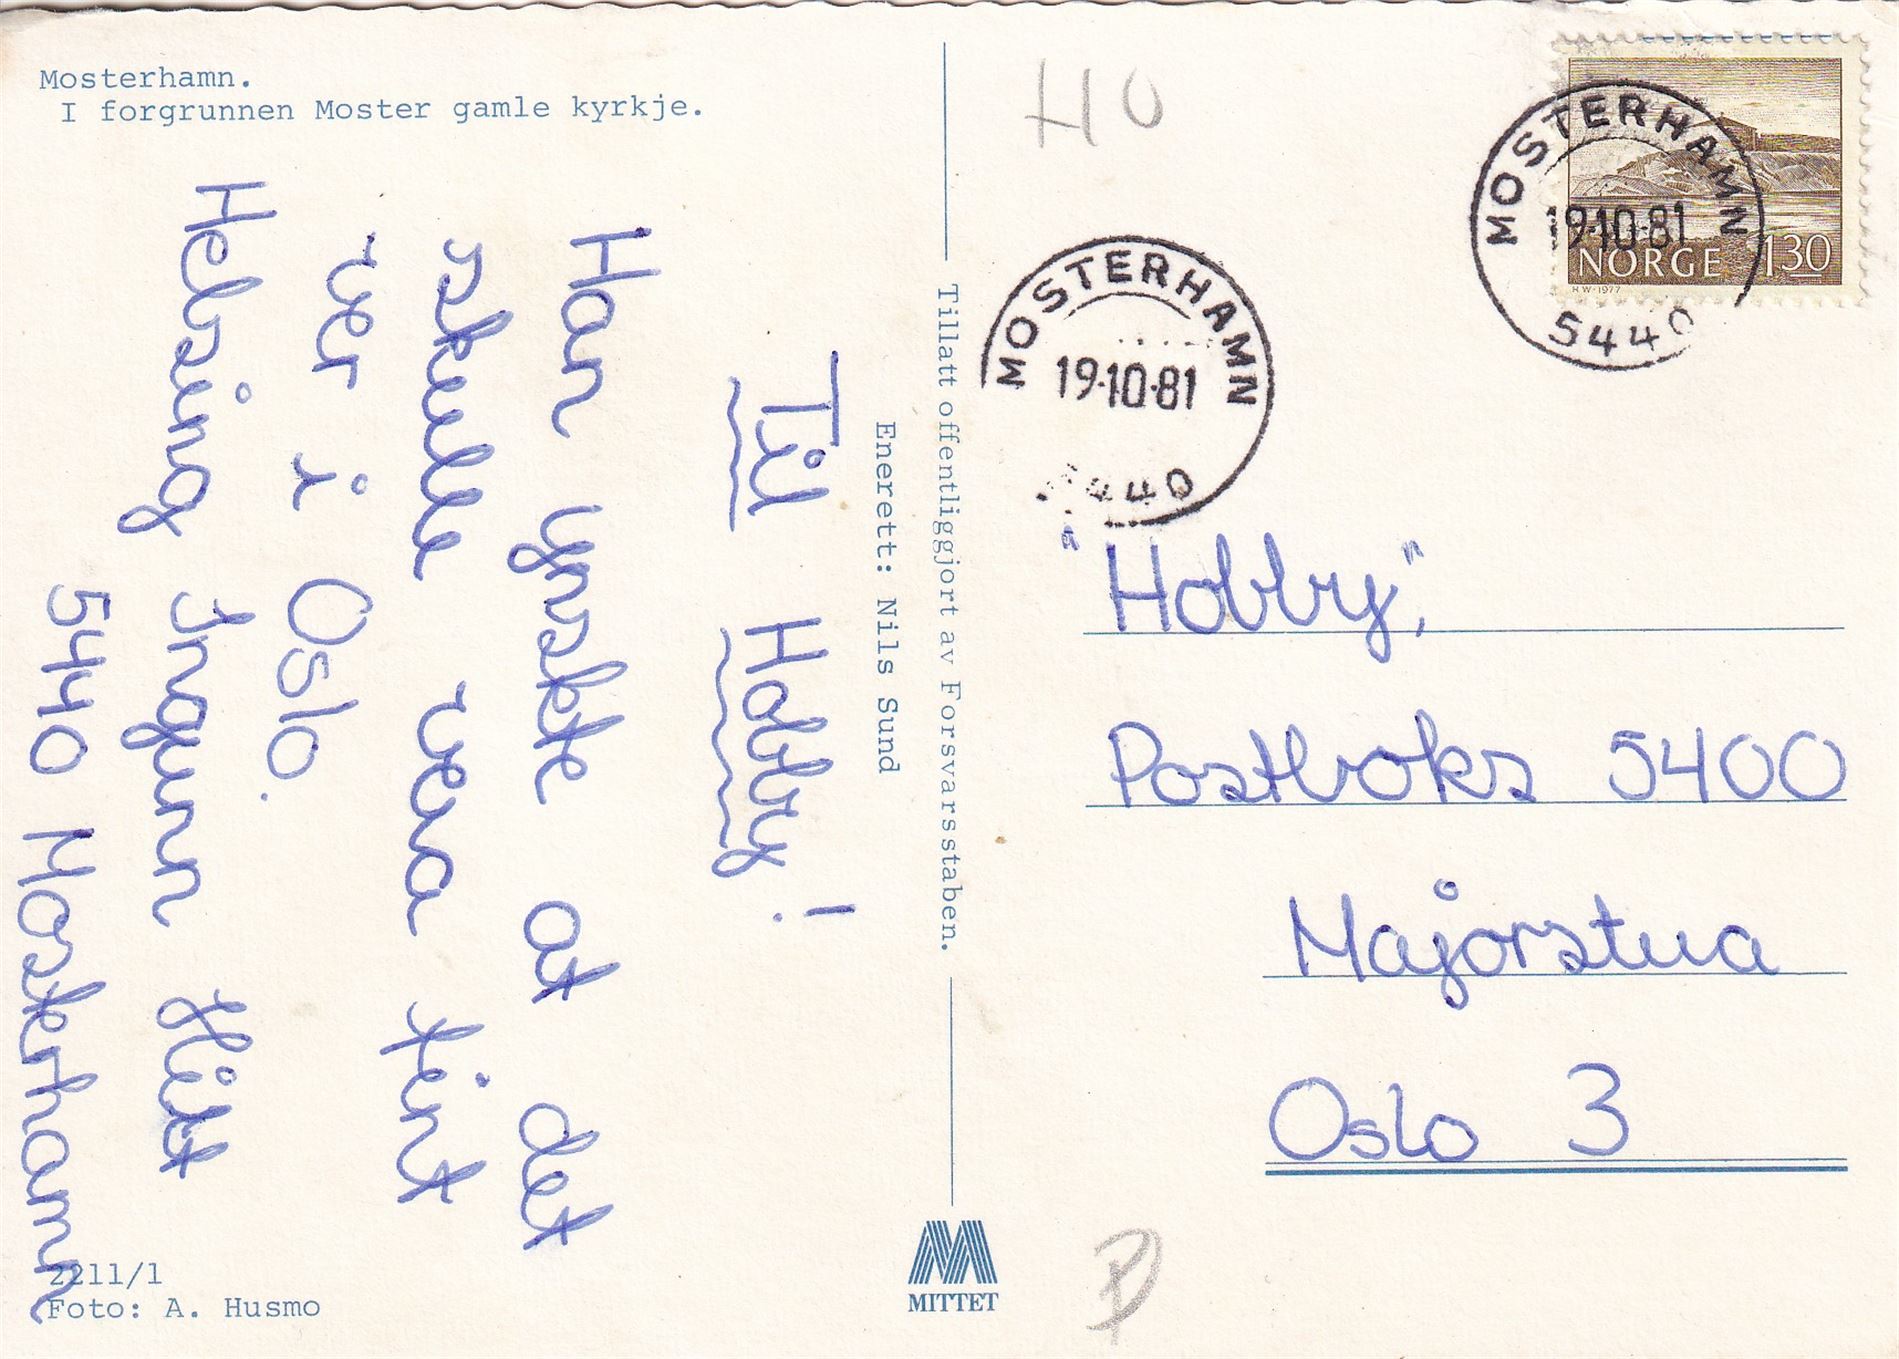 Mosterhamn.
I forgrunnen Moster gamle kyrkje.
Til Hobby!
Han ynskte at det
skulle vera fint
ver i Oslo.
Helsing Ingunn
5440 Mosterhamn
2211/1
Foto: A. Husmo
Enerett: Nils Sund
Tillatt offentliggjort av Forsvarsstaben.
MITTET
HO
MOSTERHAMN
19·10·81
5440
MOSTERHAMN
19·10·81
5440
NORGE 130
RW·1977
"Hobby",
Postboks 5400
Majorstua
Oslo 3